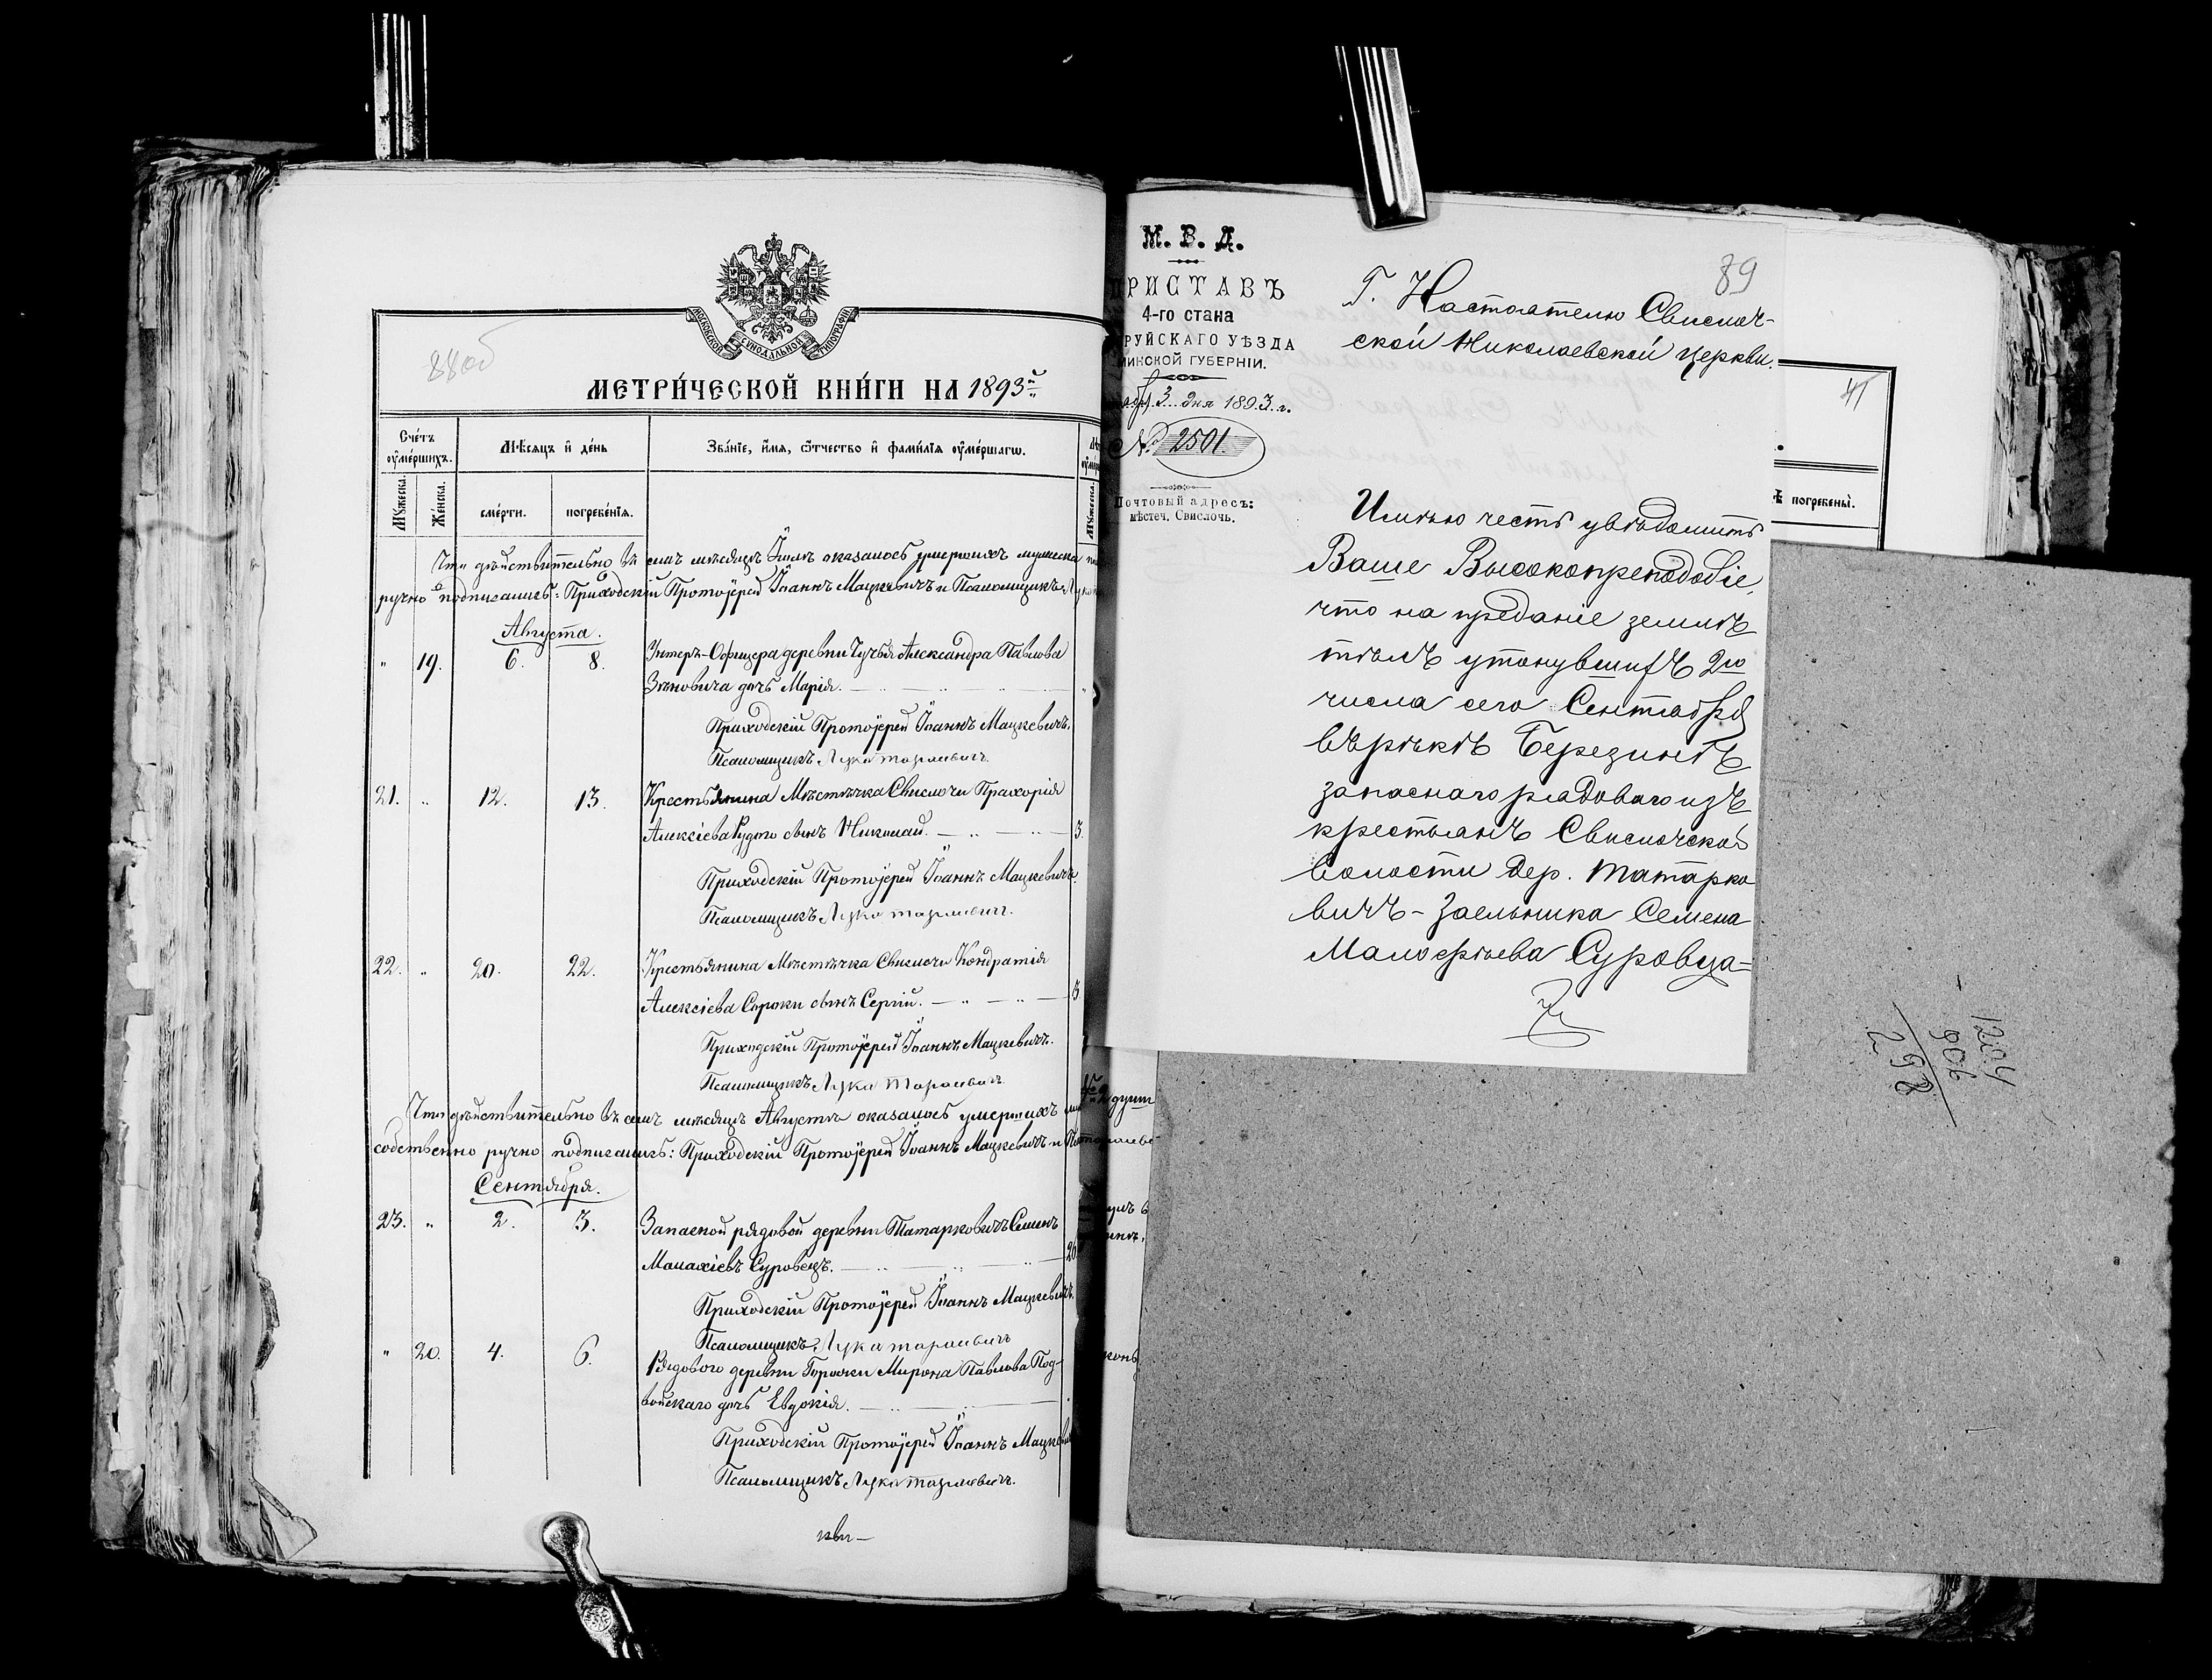 88об
МОСКОВСКОЙ СѴНОДАЛЬНОЙ ТИПОГРАФІИ
МЕТРИ́ЧЕСКОЙ КНИ́ГИ НА 1893й
Сче́тъ оу҆ме́ршихъ.
Мѣ́сяцъ и҆ де́нь
Зва́нїе, и҆́мя, ѻ҆́тчество и҆ фами́лїя оу҆ме́ршагѡ.
Мꙋ́жеска.
Же́нска.
сме́рти.
погребе́нїя.
Что действительно въ семъ мѣсяцѣ Іюлѣ оказалось умершихъ мужеска
ручно подписались: Приходскій Протоіерей Іоаннъ Мацкевичъ и Псаломщикъ
Августа.
" 19. 6. 8. Унтеръ-Офицера деревни Чучья Александра Павлова
Зеновича дочь Марія.
Приходскій Протоіерей Іоаннъ Мацкевичъ.
Псаломщикъ Лука Тараевичъ
21. " 12. 13. Крестьянина Мѣстечка Свислочи Прахорія
Алексіева Рудого сынъ Николай. 3.
Приходскій Протоіерей Іоаннъ Мацкевичъ.
Псаломщикъ Лука Тараевичъ.
22. " 20. 22. Крестьянина Мѣстечка Свислочи Кондратія
Алексіева Сороки сынъ Сергій. 3
Приходскій Протоіерей Іоаннъ Мацкевичъ.
Псаломщикъ Лука Тараевичъ
Что дѣйствительно въ семъ мѣсяцѣ Августѣ оказалось умершихъ 2 душ
собственно ручно подписались: Приходскій Протоіерей Іоаннъ Мацкевичъ и
Сентября.
23. " 2. 3. Запасной рядовой деревни Татарковичъ Семенъ
Малахіевъ Суровецъ. 26
Приходскій Протоіерей Іоаннъ Мацкевичъ.
Псаломщикъ Лука Тараевичъ
" 20. 4. 6. Рядового деревни Горожи Мирона Павлова Под-
войскаго дочь Евдокія.
Приходскій Протоіерей Іоаннъ
Псаломщикъ Лука Тараевичъ.
М. В. Д.
РИСТАВЪ
4-го стана
РУЙСКАГО УѢЗДА
МИНСКОЙ ГУБЕРНІИ.
3 дня 1893 г.
№ 2501.
Почтовый адресъ:
мѣстеч. Свислочь.
89
Г. Настоятелю Свислоч-
ской Николаевской церкви.
Имѣю честь увѣдомить
Ваше Высокопреподобіе,
что на преданіе землѣ
тѣлъ утонувшихъ 2го
числа сего Сентября
въ рѣкѣ Березинѣ
запаснаго рядоваго изъ
крестьянъ Свислочской
волости дер. Татарко
вичъ - Заельника Семена
Малофѣева Суровца
41
погребены̀.
1204
906
298